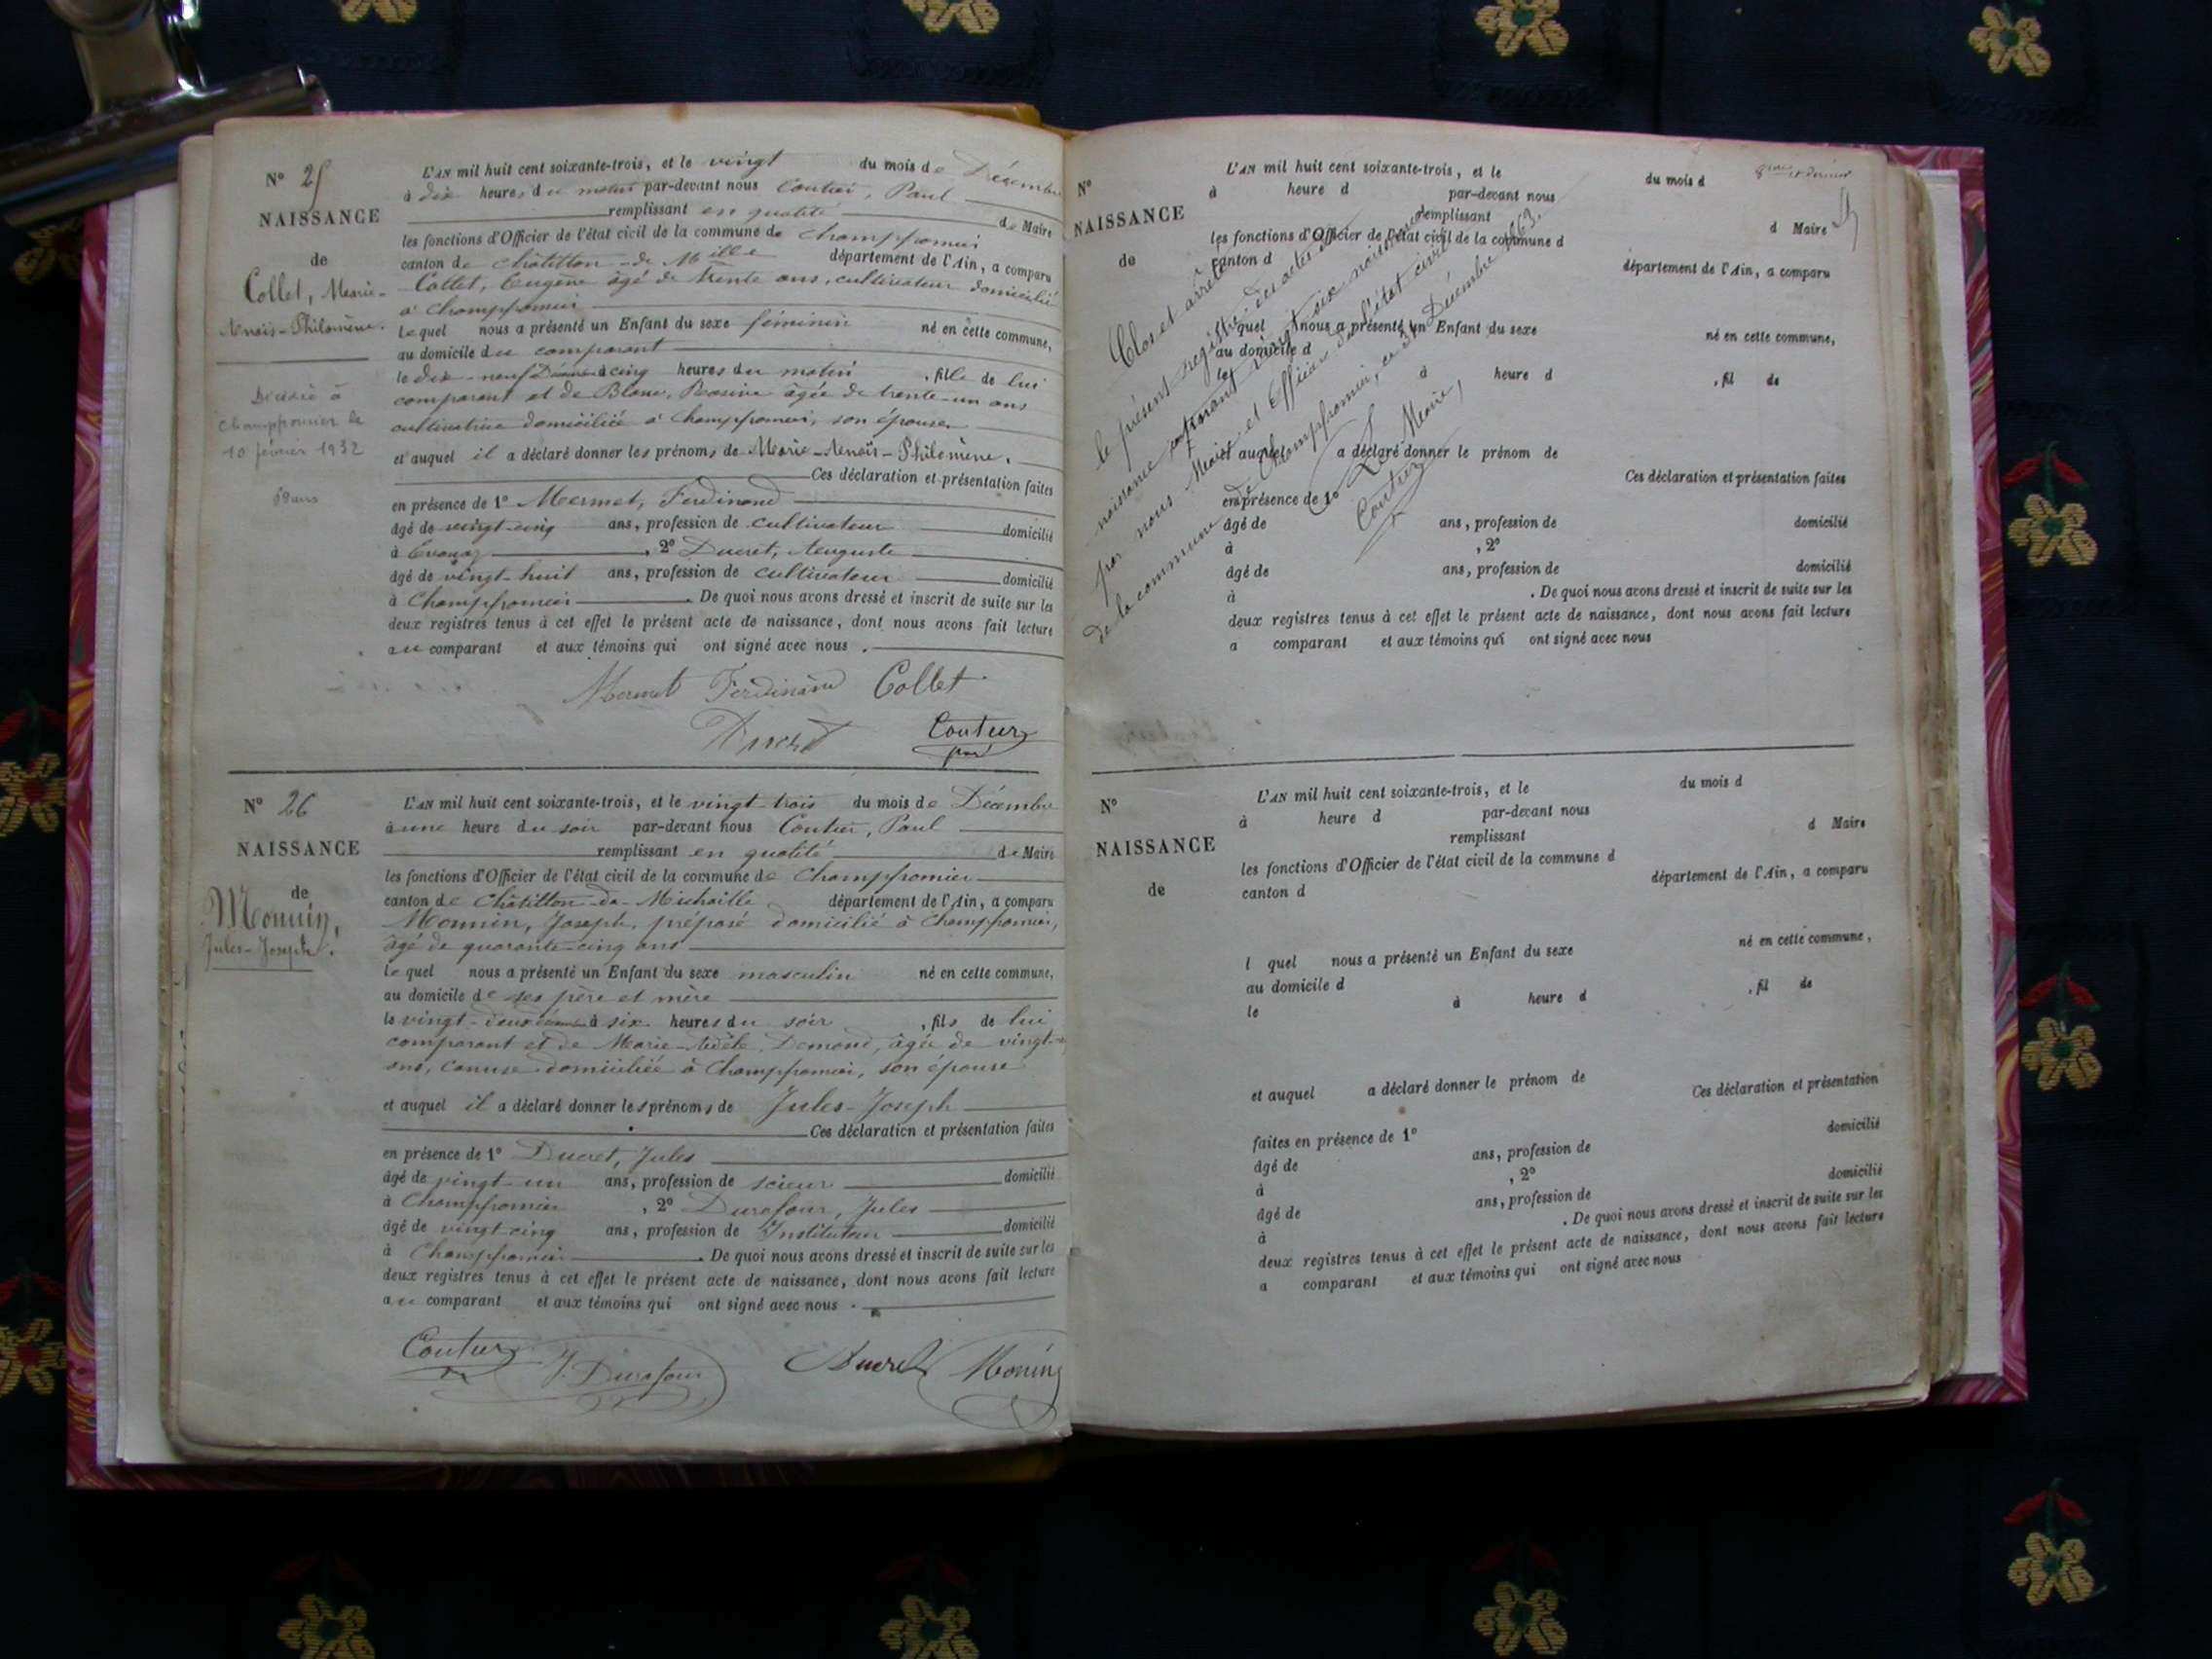 N° 25
NAISSANCE
de
Collet, Marie-
Anaïs-Philomène.
Décédée à
Champfromier le
10 février 1932
L'AN mil huit cent soixante-trois, et le vingt du mois de Décembre
à dix heures du matin par-devant nous Coutier, Paul
remplissant en qualité de Maire
les fonctions d'Officier de l'état civil de la commune de Champfromier
canton de Châtillon-de-Mille département de l'Ain, a comparu
Collet, Eugène âgé de trente ans, cultivateur domicilié
à Champfromier
lequel nous a présenté un Enfant du sexe féminin né en cette commune,
au domicile du comparant
le dix-neuf Décembre à cinq heures du matin, fille de lui
comparant et de Blanc, Rosine âgée de trente-un ans
cultivatrice domiciliée à Champfromier, son épouse
et auquel il a déclaré donner les prénoms de Marie-Anaïs-Philomène.
Ces déclaration et présentation faites
en présence de 1° Mermet, Ferdinand
âgé de vingt-cinq ans, profession de cultivateur domicilié
à Evouaz, 2° Ducret, Auguste
âgé de vingt-huit ans, profession de cultivateur domicilié
à Champfromier. De quoi nous avons dressé et inscrit de suite sur les
deux registres tenus à cet effet le présent acte de naissance, dont nous avons fait lecture
au comparant et aux témoins qui ont signé avec nous.
Mermet Ferdinand Collet
Ducret Coutier
N° 26
NAISSANCE
de
Monnin,
Jules-Joseph.
L'AN mil huit cent soixante-trois, et le vingt-trois du mois de Décembre
à une heure du soir par-devant nous Coutier, Paul
remplissant en qualité de Maire
les fonctions d'Officier de l'état civil de la commune de Champfromier
canton de Châtillon-de-Michaille département de l'Ain, a comparu
Monnin, Joseph, préposé domicilié à Champfromier,
âgé de quarante-cinq ans
lequel nous a présenté un Enfant du sexe masculin né en cette commune,
au domicile de ses père et mère
le vingt-deux Décembre à six heures du soir, fils de lui
comparant et de Marie-Adèle, Demond, âgée de vingt-
ans, domiciliée à Champfromier, son épouse
et auquel il a déclaré donner les prénoms de Jules-Joseph
Ces déclaration et présentation faites
en présence de 1° Ducret, Jules
âgé de vingt-un ans, profession de scieur domicilié
à Champfromier, 2° Durafour, Jules
âgé de vingt-cinq ans, profession de Instituteur domicilié
à Champfromier. De quoi nous avons dressé et inscrit de suite sur les
deux registres tenus à cet effet le présent acte de naissance, dont nous avons fait lecture
au comparant et aux témoins qui ont signé avec nous.
Coutier J. Durafour Ducret Monin
8me et dernier
N°
NAISSANCE
de
L'AN mil huit cent soixante-trois, et le du mois d
à heure d par-devant nous
remplissant d Maire
les fonctions d'Officier de l'état civil de la commune d
canton d département de l'Ain, a comparu
l quel nous a présenté un Enfant du sexe né en cette commune,
au domicile d
le à heure d , fil de
et auquel a déclaré donner le prénom de
Ces déclaration et présentation faites
en présence de 1°
âgé de ans, profession de domicilié
à , 2°
âgé de ans, profession de domicilié
à . De quoi nous avons dressé et inscrit de suite sur les
deux registres tenus à cet effet le présent acte de naissance, dont nous avons fait lecture
a comparant et aux témoins qui ont signé avec nous
Clos et arrêté
le présent registre des actes de
naissance contenant vingt-six naissances
par nous Maire et Officier de l'état civil
de la commune de Champfromier, ce 31 Décembre 1863.
Le Maire,
Coutier
N°
NAISSANCE
de
L'AN mil huit cent soixante-trois, et le du mois d
à heure d par-devant nous
remplissant d Maire
les fonctions d'Officier de l'état civil de la commune d
canton d département de l'Ain, a comparu
l quel nous a présenté un Enfant du sexe né en cette commune,
au domicile d
le à heure d , fil de
et auquel a déclaré donner le prénom de
Ces déclaration et présentation
faites en présence de 1°
âgé de ans, profession de domicilié
à , 2°
âgé de ans, profession de domicilié
à . De quoi nous avons dressé et inscrit de suite sur les
deux registres tenus à cet effet le présent acte de naissance, dont nous avons fait lecture
a comparant et aux témoins qui ont signé avec nous